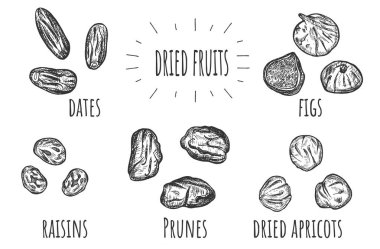 DRIED FRUITS
DATES
FIGS
RAISINS
PRUNES
DRIED APRICOTS